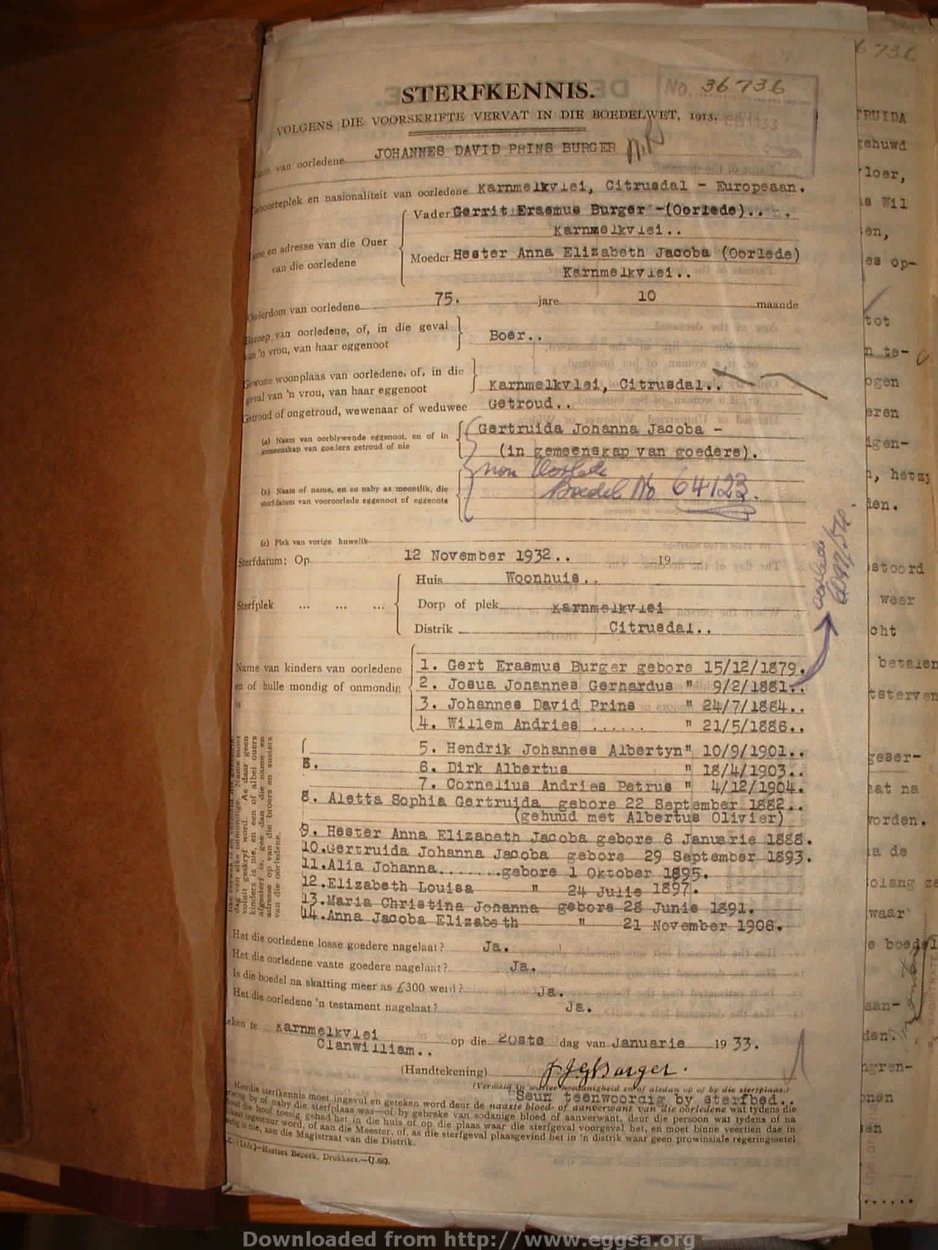 No. 36736
STERFKENNIS.
VOLGENS DIE VOORSKRIFTE VERVAT IN DIE BOEDELWET, 1913.
van oorledene JOHANNES DAVID PRINS BURGER
en nasionaliteit van oorledene Karnmelkvlei, Citrusdal - Europeaan.
en adresse van die Ouer van die oorledene
Vader Gerrit Erasmus Burger -(Oorlede)..
Karnmelkvlei..
Moeder Hester Anna Elizabeth Jacoba (Oorlede)
Karnmelkvlei..
van oorledene 75. jare 10 maande
van oorledene, of, in die geval
'n vrou, van haar eggenoot Boer..
woonplaas van oorledene, of, in die
geval van 'n vrou, van haar eggenoot Karnmelkvlei, Citrusdal..
Getroud of ongetroud, wewenaar of weduwee Getroud..
(a) Naam van oorblywende eggenoot, en of in
gemeenskap van goedere getroud of nie
Gertruida Johanna Jacoba -
(in gemeenskap van goedere).
nou Oorlede
Boedel No 64123.
(b) Naam of name, en so naby as moontlik, die
sterfdatum van vooroorlede eggenoot of eggenote
(c) Plek van vorige huwelik
Sterfdatum: Op 12 November 1932.. 19
oorlede
Sterfplek ... ... ...
Huis Woonhuis..
Dorp of plek Karnmelkvlei
Distrik Citrusdal..
Name van kinders van oorledene
en of hulle mondig of onmondig
is
1. Gert Erasmus Burger gebore 15/12/1879.
2. Josua Johannes Gernardus " 9/2/1881..
3. Johannes David Prins " 24/7/1884..
4. Willem Andries ...... " 21/5/1886..
5. Hendrik Johannes Albertyn" 10/9/1901..
6. Dirk Albertus " 18/4/1903..
7. Cornelius Andries Petrus " 4/12/1904.
8. Aletta Sophia Gertruida gebore 22 September 1882..
(gehuud met Albertus Olivier)
9. Hester Anna Elizabeth Jacoba gebore 6 Januarie 1888.
10.Gertruida Johanna Jacoba gebore 29 September 1893.
11.Alia Johanna.......gebore 1 Oktober 1895.
12.Elizabeth Louisa " 24 Julie 1897.
13.Maria Christina Johanna gebore 28 Junie 1891.
14.Anna Jacoba Elizabeth " 21 November 1908.
Het die oorledene losse goedere nagelaat? Ja.
Het die oorledene vaste goedere nagelaat? Ja.
Is die boedel na skatting meer as £300 werd? Ja.
Het die oorledene 'n testament nagelaat? Ja.
Karnmelkvlei
Clanwilliam.. op die 20ste dag van Januarie 1933.
(Handtekening) J J G Burger.
Seun teenwoordig by sterfbed..
Hierdie sterfkennis moet ingevul en geteken word deur de naaste bloed- of aanverwant van die oorledene wat tydens die
of naby die sterfplaas was—of by gebreke van sodanige bloed of aanverwant, deur die persoon wat tydens of na
die hoof toesig gehad het in die huis of op die plaas waar die sterfgeval voorgeval het, en moet binne veertien dae in
word, of aan die Meester, of, as die sterfgeval plaasgevind het in 'n distrik waar geen provinsiale regeringsetel
is nie, aan die Magistraat van die Distrik.
Beperk, Drukkers.
Downloaded from http://www.eggsa.org